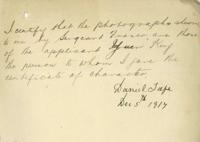 I certify that the photographs shown
to me by Sergeant Fraser are those
of the applicant
the person to whom I gave the
certificate of character.
Daniel
Dec 5th 1917